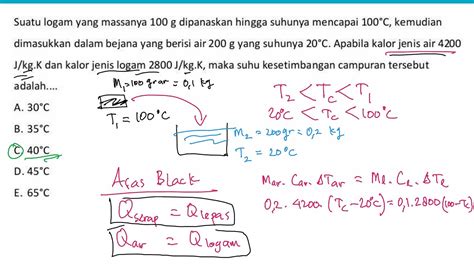 Suatu logam yang massanya 100 g dipanaskan hingga suhunya mencapai 100°C, kemudian
dimasukkan dalam bejana yang berisi air 200 g yang suhunya 20°C. Apabila kalor jenis air 4200
J/kg.K dan kalor jenis logam 2800 J/kg.K, maka suhu kesetimbangan campuran tersebut
adalah....
M₁=100 gram = 0,1 kg
T₁ = 100°C
M₂ = 200gr = 0,2 kg
T₂ = 20°C
T₂ < Tc < T₁
20°C < Tc < 100°C
A. 30°C
B. 35°C
C. 40°C
D. 45°C
E. 65°C
Asas Black
Qserap = Qlepas
Qair = Qlogam
Mar. Car. ΔTar = Ml. Cl. ΔTl
0,2. 4200 (Tc - 20°C) = 0,1. 2800 (100-Tc)